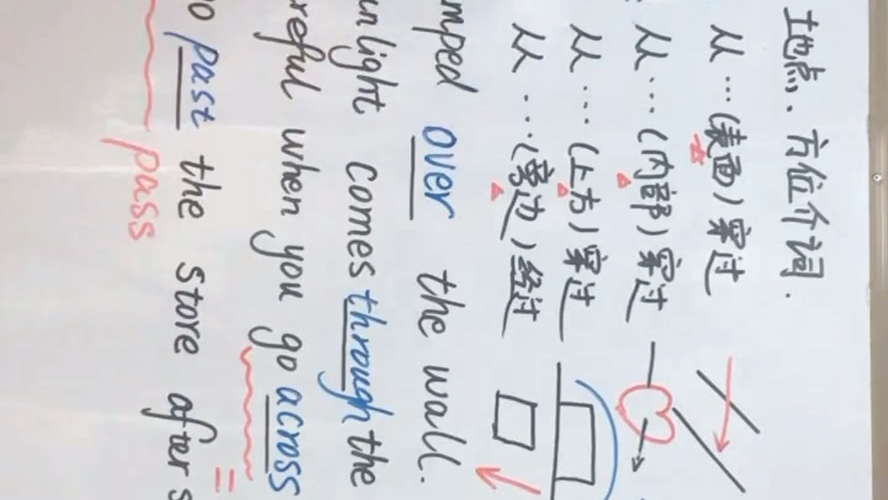 地点、方位介词.
从…(表面)穿过
从…(内部)穿过
从…(上方)穿过
从…(旁边)经过
mped over the wall.
nlight comes through the
reful when you go across
o past the store after s
pass